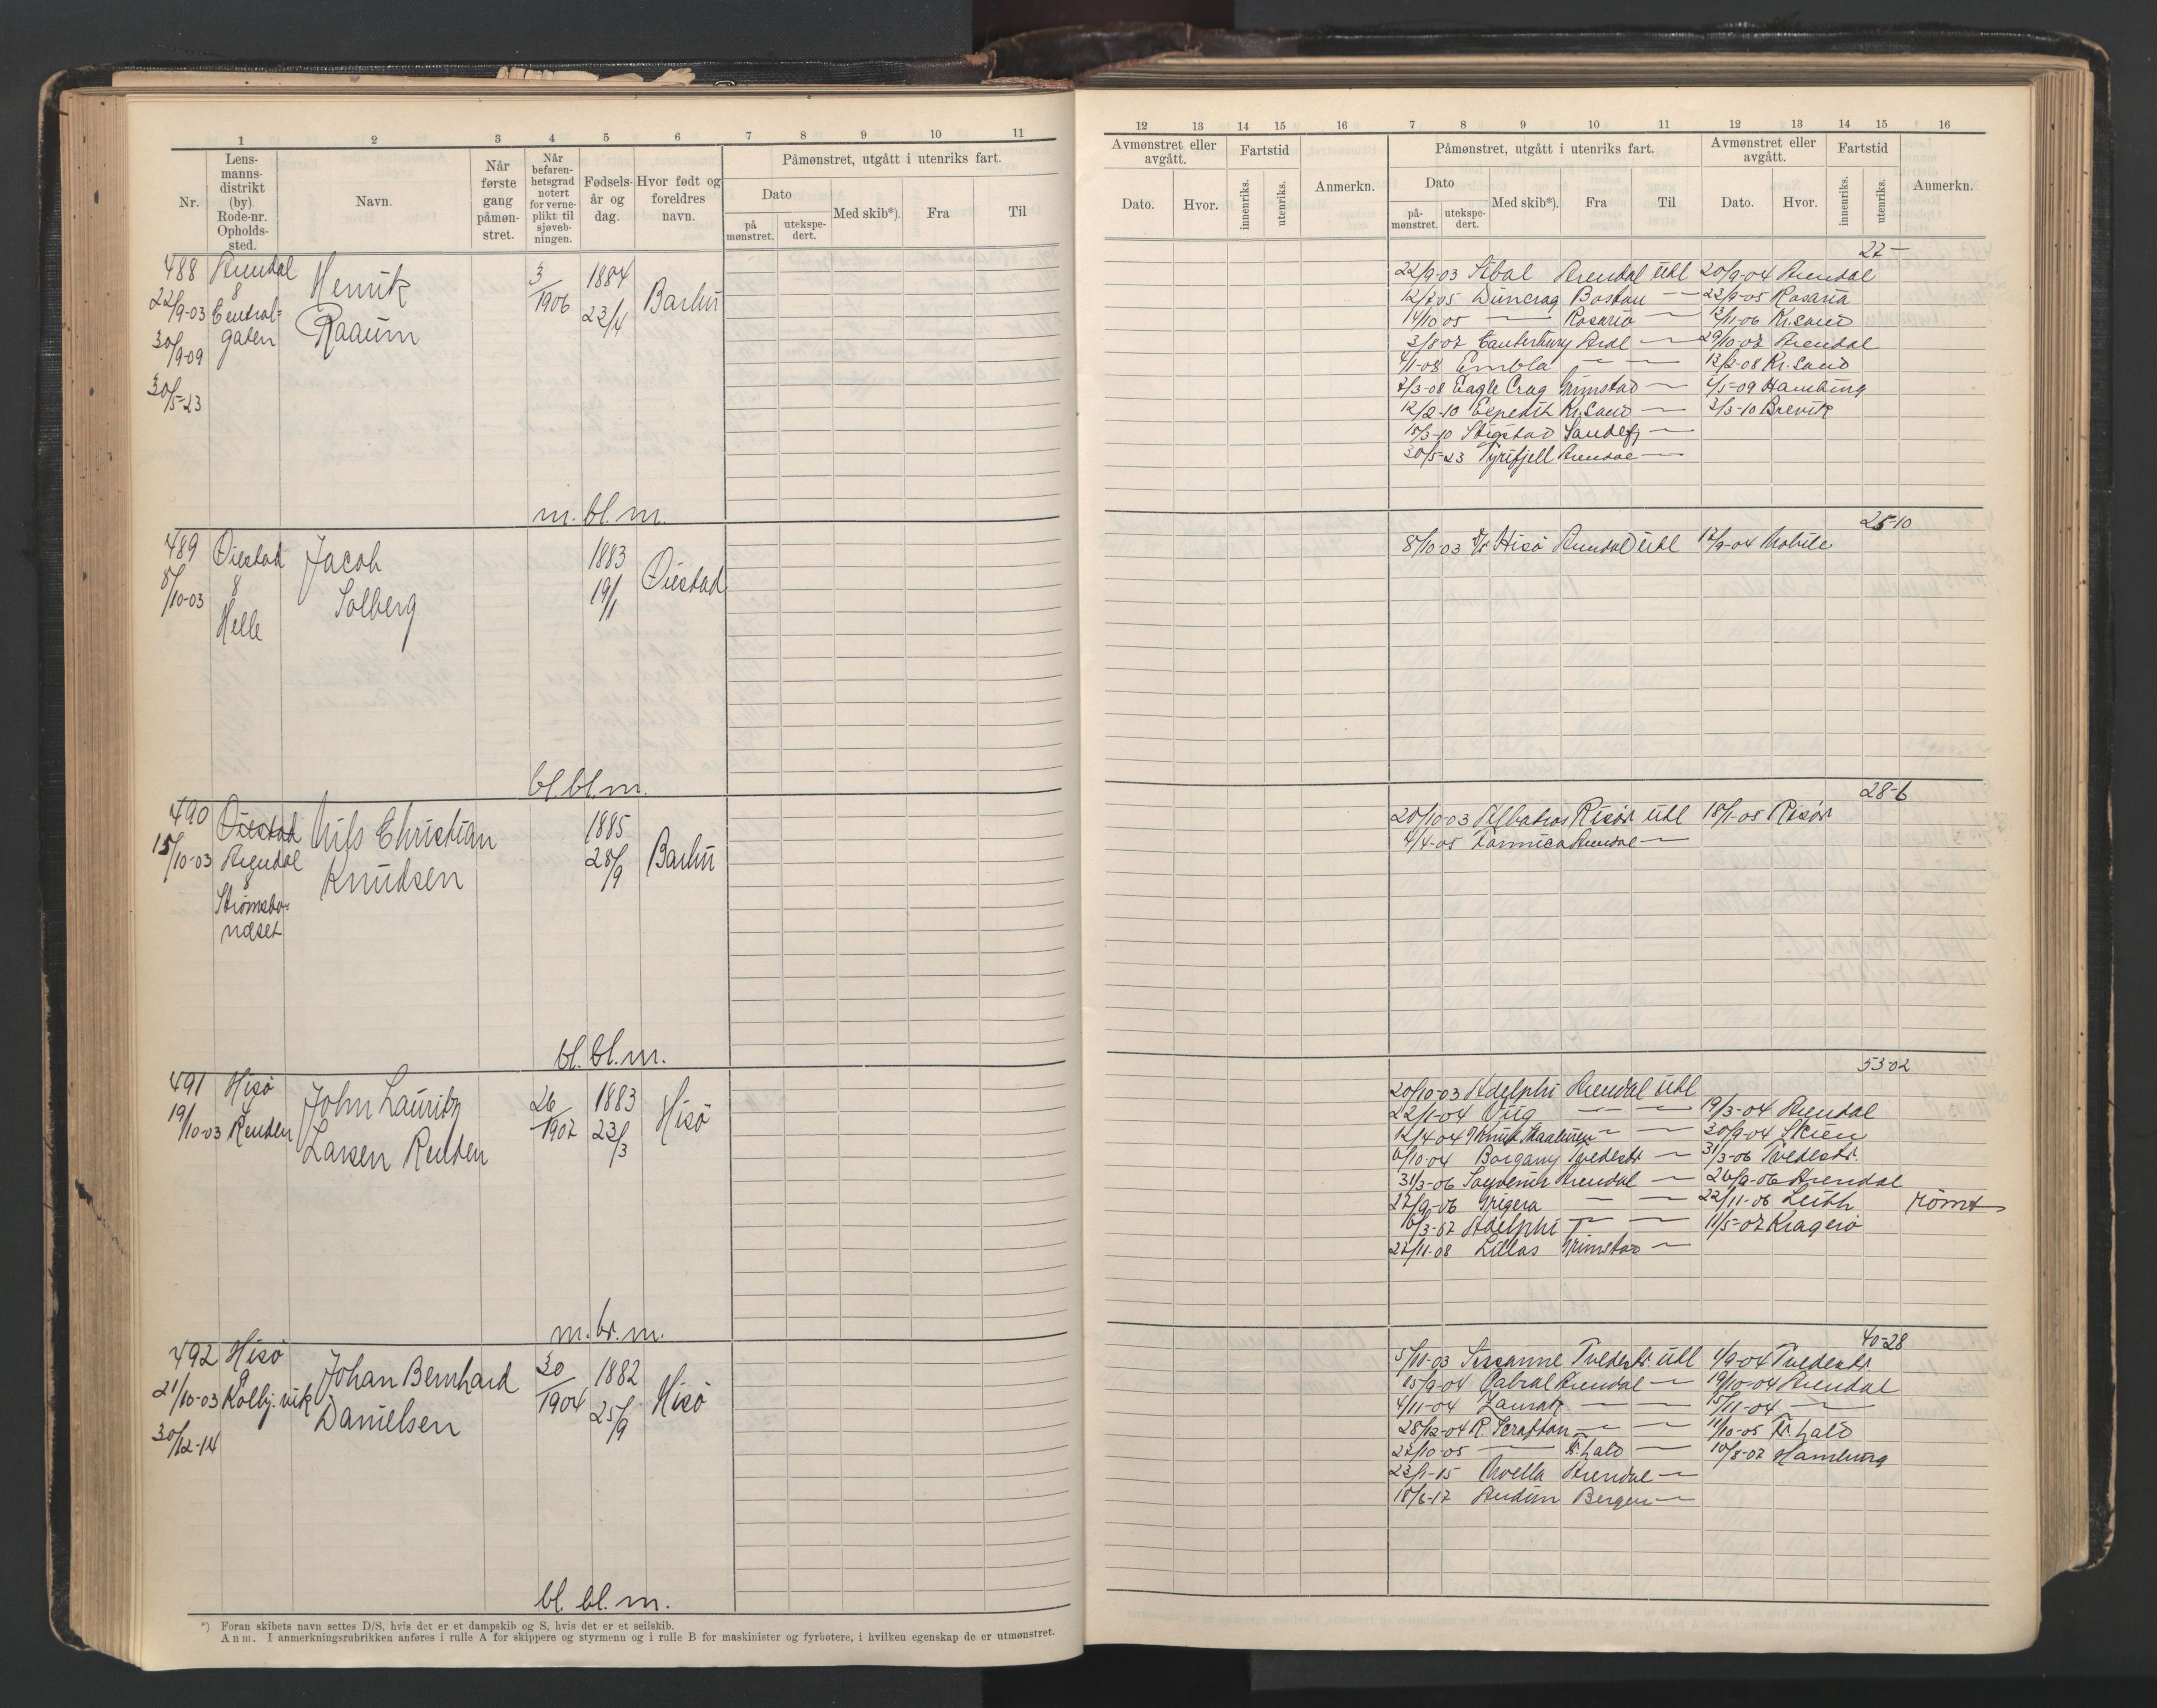 1 2 3 4 5 6 7 8 9 10 11
Nr.
Lens-
manns-
distrikt
(by).
Rode-nr.
Opholds-
sted.
Navn.
Når
første
gang
påmøn-
stret.
Når
befaren-
hetsgrad
notert
for verne-
plikt til
sjøveb-
ningen.
Fødsels-
år og
dag.
Hvor født og
foreldres
navn.
Påmønstret, utgått i utenriks fart.
Dato
på
mønstret.
utekspe-
dert.
Med skib*).
Fra
Til
488 Arendal Henrik 3/1906 1884 Barbu
22/9-03 8 Central- Raaum 23/4
30/9-09 gaten
30/5-23
m. bl. m.
489 Øiestad Jacob 1883 Øiestad
8/10-03 8 Solberg 19/1
Helle
bl. bl. m.
490 Øiestad Nils Christian 1885 Barbu
15/10-03 Arendal Knudsen 28/9
8
Strømsbu-
næset
bl. bl. m.
491 Hisö John Lauritz 26/1907 1883 Hisö
19/10-03 Renden Larsen Renden 23/3
m. br. m.
492 Hisö Johan Bernhard 30/1904 1882 Hisö
21/10-03 Kolbj. vik Danielsen 25/9
30/12-14
bl. bl. m.
*) Foran skibets navn settes D/S, hvis det er et dampskib og S, hvis det er et seilskib.
Anm. I anmerkningsrubrikken anføres i rulle A for skippere og styrmenn og i rulle B for maskinister og fyrbøtere, i hvilken egenskap de er utmønstret.
12 13 14 15 16 7 8 9 10 11 12 13 14 15 16
Avmønstret eller
avgått.
Dato.
Hvor.
Fartstid
innenriks.
utenriks.
Anmerkn.
Påmønstret, utgått i utenriks fart.
Dato
på-
mønstret.
utekspe-
dert.
Med skib*).
Fra
Til
Avmønstret eller
avgått.
Dato.
Hvor.
Fartstid
innenriks.
utenriks.
Anmerkn.
27 —
22/9-03 Arendal utl 20/9-04 Arendal
12/7-05 Duncrag Boston — 23/9-05 Rosaria
14/10-05 — Rosario — 12/11-06 Kr.sand
3/8-07 Canterbury Ardl — 29/10-07 Arendal
4/1-08 Embla — — 13/2-08 Kr.sand
7/3-08 Eagle Crag Grimstad — 5/5-09 Hamburg
12/2-10 Expedit Kr.sand — 3/3-10 Brevik
15/3-10 Stigstad Sandefj —
30/5-23 Tyrifjell Arendal —
25-10
8/10-03 Hisö Arendal utl 17/9-04 Mobile
28-6
20/10-03 Albatros Risör utl 18/1-05 Risör
4/4-05 Arendal —
53-02
20/10-03 Adelphi Arendal utl
22/1-04 — — 19/3-04 Arendal
12/4-04 — — 30/9-04 Skien
6/10-04 Borgany Tvedestr — 31/3-06 Tvedestr.
31/3-06 Souvenir Arendal — 26/9-06 Arendal
27/9-06 — — 22/11-06 Leith römt
16/3-07 Adelphi — — 11/5-07 Kragerö
27/11-08 Lillas Grimstad —
40-28
5/11-03 Susanne Tvedestr utl 1/9-04 Tvedestr.
15/9-04 Cabral Arendal — 19/10-04 Arendal
4/11-04 — — 15/11-04 —
28/12-04 R. Scrafton — — 11/10-05 Fr.hald
27/10-05 — Fr.hald — 10/8-07 Hamburg
23/1-15 Arendal —
18/6-17 Audun Bergen —